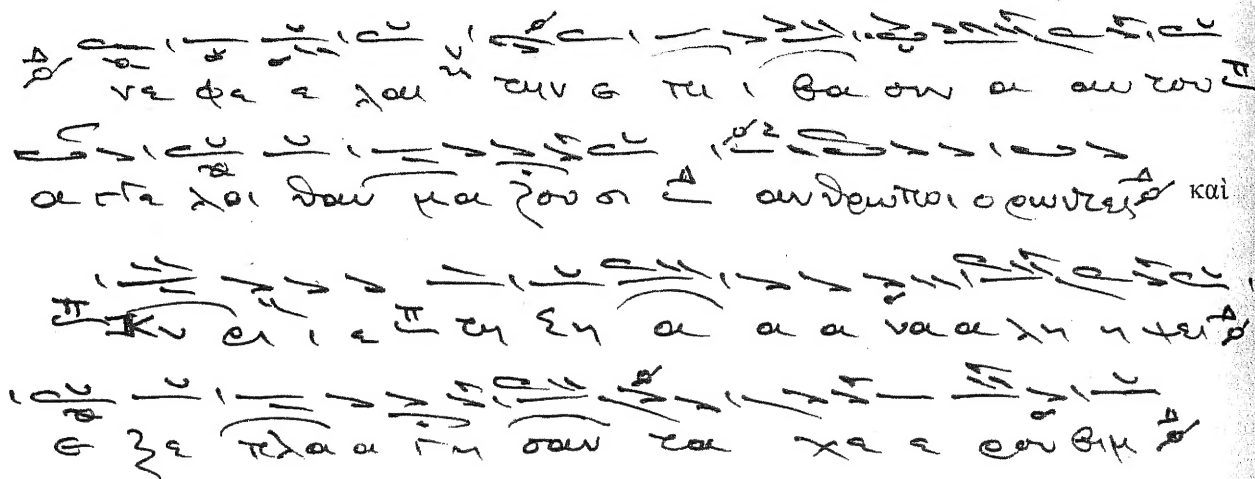 νε φε ε λαι την ε πι ι βα σιν α αυ του
α γγε λοι θαυ μα ζου σι ανθρωποι ορωντες καὶ
Κυ ρι ι ε τη ση α α α να α λη η ψει
ε ξε πλα α γη σαν τα χε ε ρου βιμ